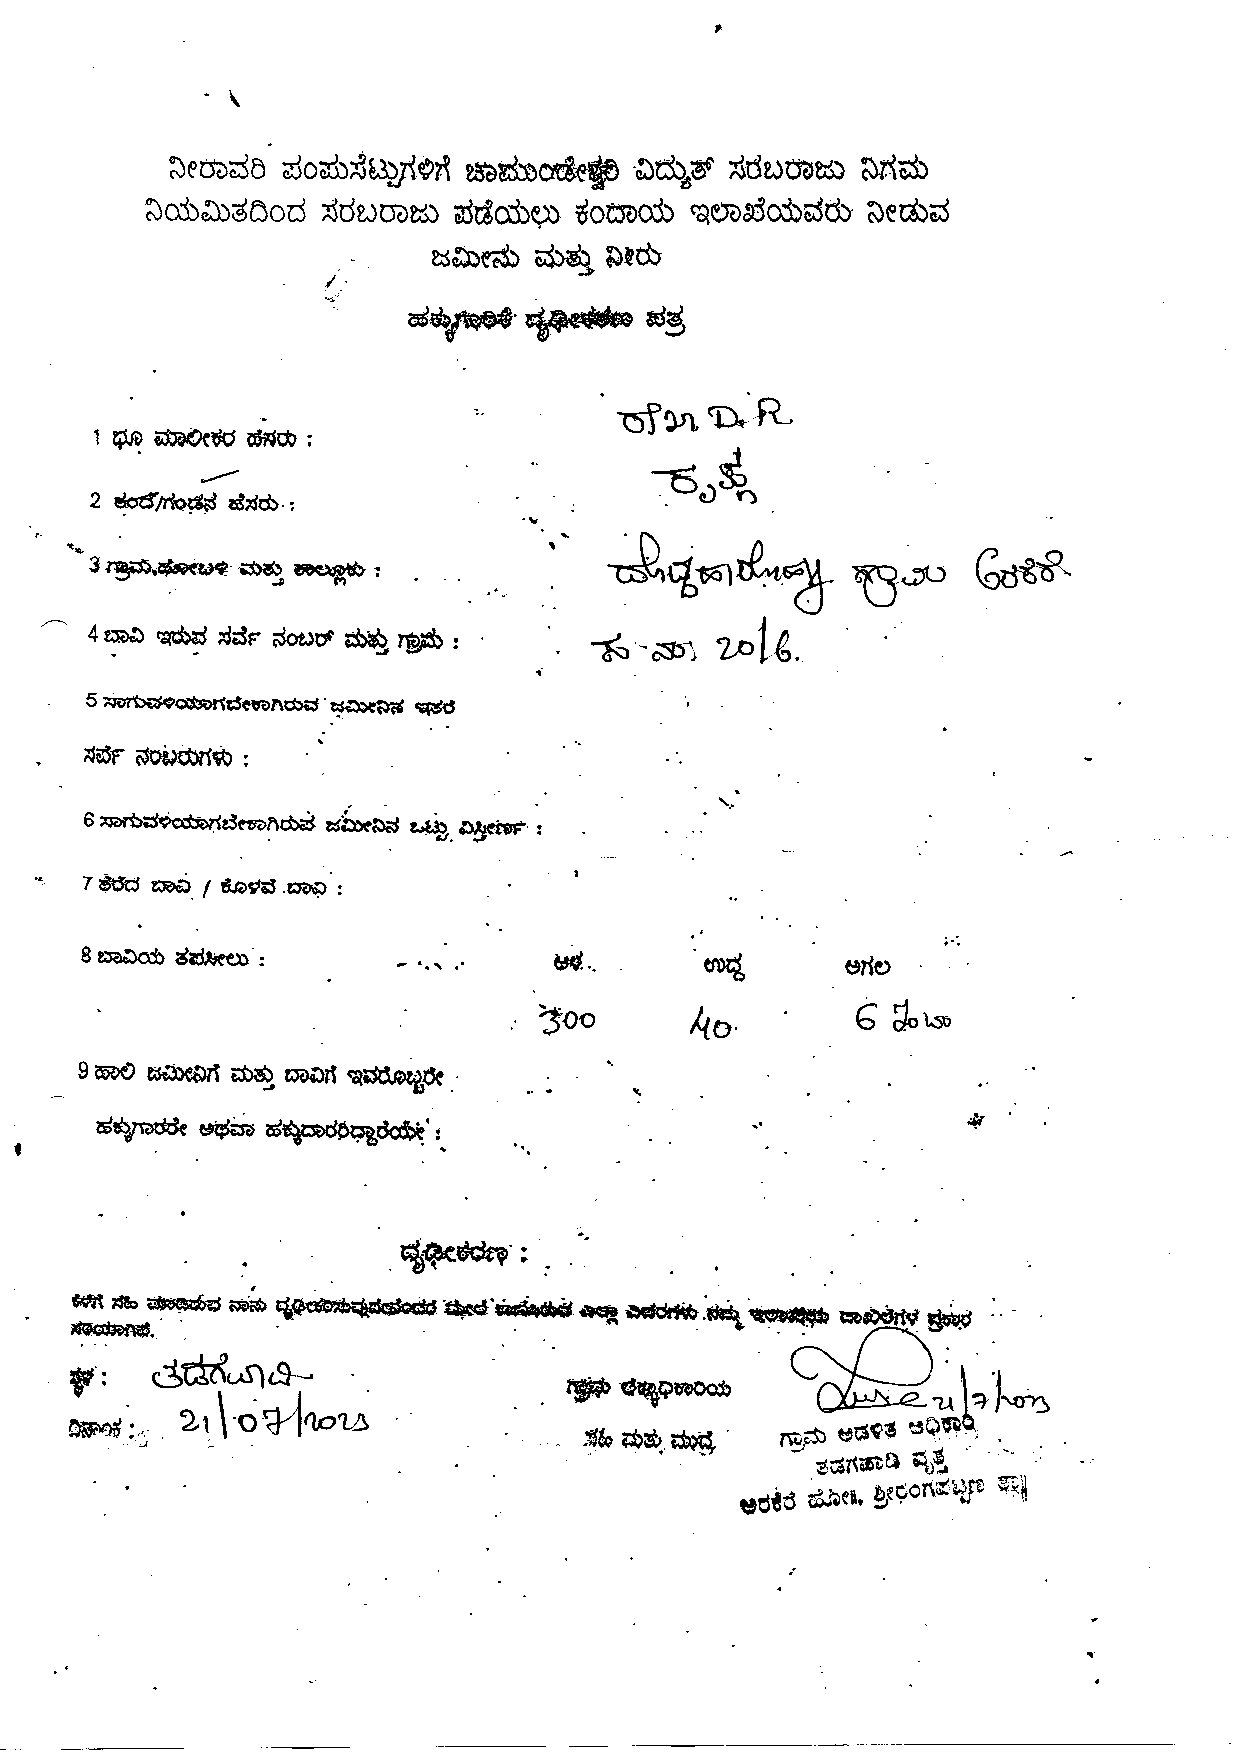 ನೀರಾವರಿ ಪಂಪುಸೆಟ್ಟುಗಳಿಗೆ ಚಾಮುಂಡೇಶ್ವರಿ ವಿದ್ಯುತ್ ಸರಬರಾಜು ನಿಗಮ
ನಿಯಮಿತದಿಂದ ಸರಬರಾಜು ಪಡೆಯಲು ಕಂದಾಯ ಇಲಾಖೆಯವರು ನೀಡುವ
ಜಮೀನು ಮತ್ತು ನೀರು
ಹಕ್ಕುಗಾರಿಕೆ ದೃಢೀಕರಣ ಪತ್ರ
1 ಭೂ ಮಾಲೀಕರ ಹೆಸರು : D.R
2 ತಂದೆ/ಗಂಡನ ಹೆಸರು : ಕೃಷ್ಣ
3 ಗ್ರಾಮ,ಹೋಬಳಿ ಮತ್ತು ತಾಲ್ಲೂಕು : ಗ್ರಾಮ ಅರಕೆರೆ
4 ಬಾವಿ ಇರುವ ಸರ್ವೆ ನಂಬರ್ ಮತ್ತು ಗ್ರಾಮ : 20/6.
5 ಸಾಗುವಳಿಯಾಗಬೇಕಾಗಿರುವ ಜಮೀನಿನ ಇತರೆ
ಸರ್ವೆ ನಂಬರುಗಳು :
6 ಸಾಗುವಳಿಯಾಗಬೇಕಾಗಿರುವ ಜಮೀನಿನ ಒಟ್ಟು ವಿಸ್ತೀರ್ಣ :
7 ತೆರೆದ ಬಾವಿ / ಕೊಳವೆ ಬಾವಿ :
8 ಬಾವಿಯ ತಪಸೀಲು : ಆಳ ಉದ್ದ ಅಗಲ
300 40 6
9 ಹಾಲಿ ಜಮೀನಿಗೆ ಮತ್ತು ಬಾವಿಗೆ ಇವರೊಬ್ಬರೇ
ಹಕ್ಕುಗಾರರೇ ಅಥವಾ ಹಕ್ಕುದಾರರಿದ್ದಾರೆಯೇ :
ದೃಢೀಕರಣ :
ಕೆಳಗೆ ಸಹಿ ಮಾಡಿರುವ ನಾನು ದೃಢೀಕರಿಸುವುದೇನೆಂದರೆ ಮೇಲೆ ಕಾಣಿಸಿರುವ ಎಲ್ಲಾ ವಿವರಗಳು ನಮ್ಮ ಇಲಾಖೆಯ ದಾಖಲೆಗಳ ಪ್ರಕಾರ
ಸರಿಯಾಗಿವೆ.
ಸ್ಥಳ : ತಡಗವಾಡಿ ಗ್ರಾಮ ಲೆಕ್ಕಾಧಿಕಾರಿಯ 21/7/2023
ದಿನಾಂಕ : 21/07/2023 ಸಹಿ ಮತ್ತು ಮುದ್ರೆ ಗ್ರಾಮ ಆಡಳಿತ ಅಧಿಕಾರಿ
ತಡಗವಾಡಿ ವೃತ್ತ
ಅರಕೆರೆ ಹೋ॥, ಶ್ರೀರಂಗಪಟ್ಟಣ ತಾ॥